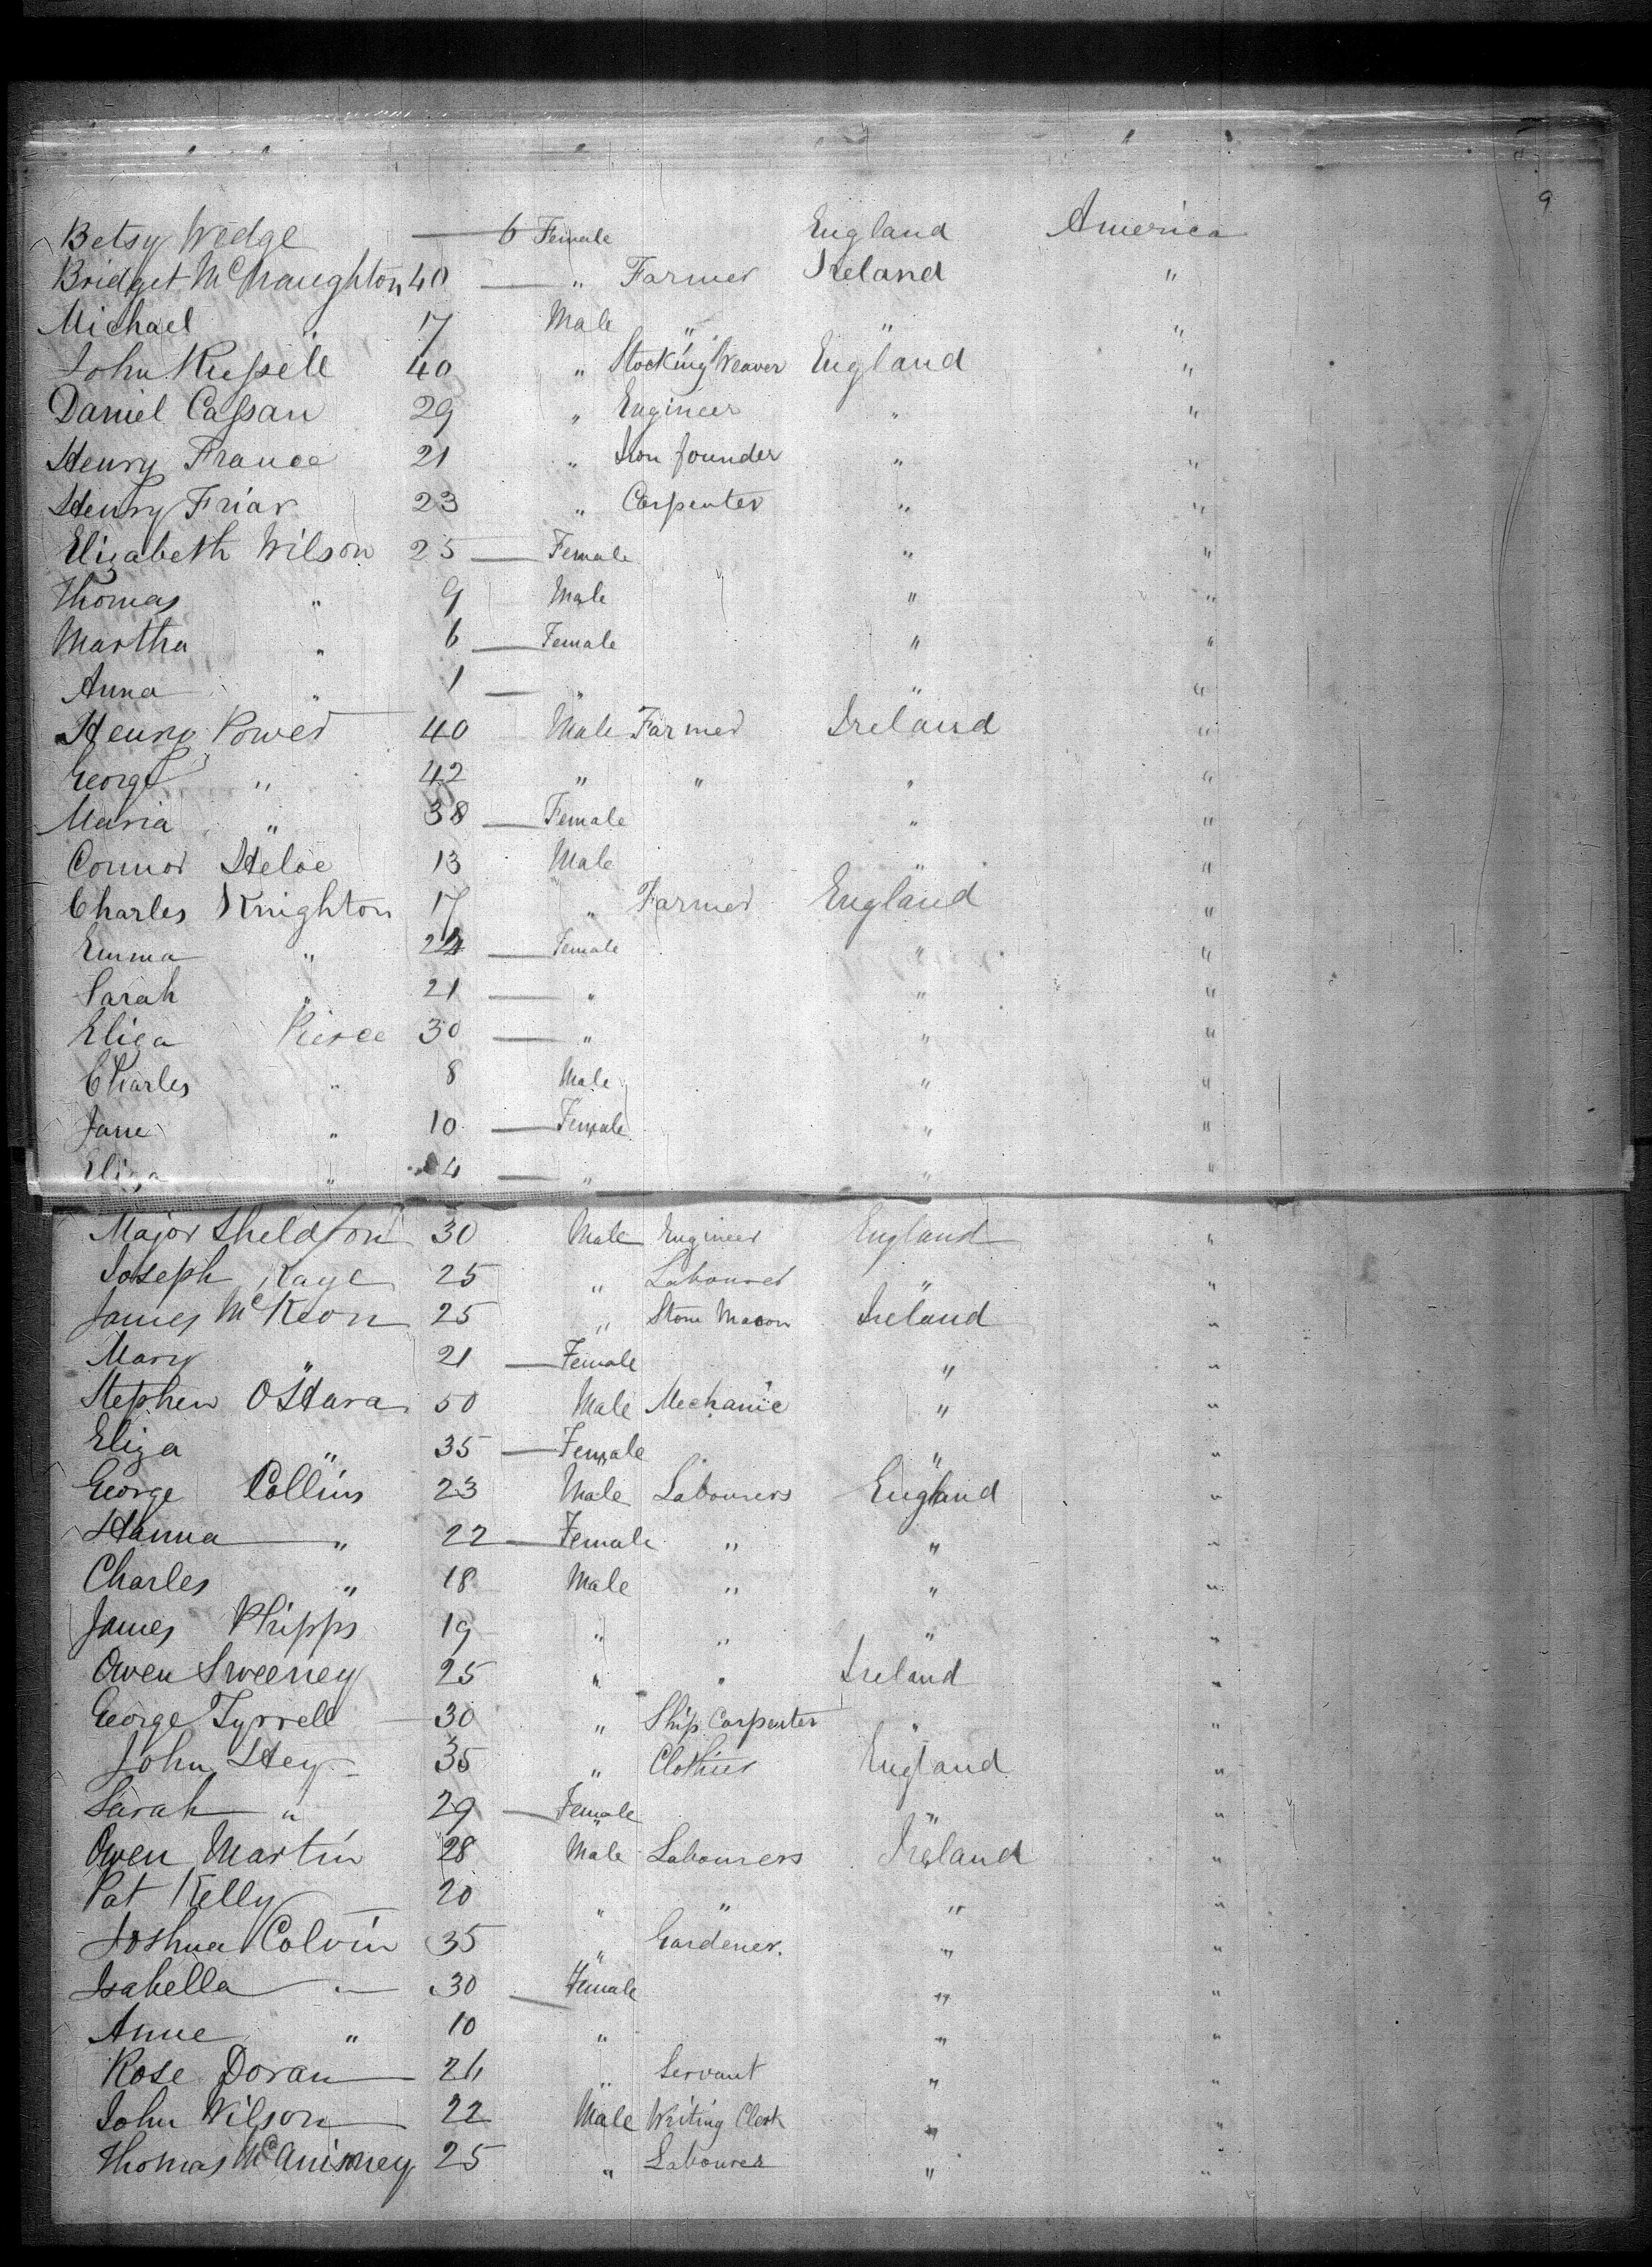 9
Betsy Wedge 6 Female England America
Bridget McNaughton 40 " Farmer Ireland "
Michael " 17 Male " " "
John Russell 40 " Stocking Weaver England "
Daniel Cassan 29 " Engineer " "
Henry France 21 " Iron founder " "
Henry Friar 23 " Carpenter " "
Elizabeth Wilson 25 Female " "
Thomas " 9 Male " "
Martha " 6 Female " "
Anna " 1 " " "
Henry Power 40 Male Farmer Ireland "
George " 42 " " " "
Maria " 38 Female " "
Connor 13 Male " "
Charles Knighton 17 " Farmer England "
Emma " 24 Female " "
Sarah " 21 " " "
Eliza Pierce 30 " " "
Charles " 8 Male " "
Jane " 10 Female " "
Eliza " 4 " " "
Major Sheldon 30 Male Engineer England "
Joseph Kaye 25 " Labourer " "
James McKeon 25 " Stone Mason Ireland "
Mary " 21 Female " "
Stephen OHara 50 Male Mechanic " "
Eliza " 35 Female " "
George Collins 23 Male Labourers England "
Hanna " 22 Female " " "
Charles " 18 Male " " "
James Phipps 19 " " " "
Owen Sweeney 25 " " Ireland "
George Tyrrell 30 " Ship Carpenter " "
John Hey 35 " Clothier England "
Sarah " 29 Female " "
Owen Martin 28 Male Labourers Ireland "
Pat Kelly 20 " " " "
Joshua Colvin 35 " Gardener. " "
Isabella " 30 Female " "
Anne " 10 " " "
Rose Doran 26 " Servant " "
John Wilson 22 Male Writing Clerk " "
Thomas 25 " Labourer " "